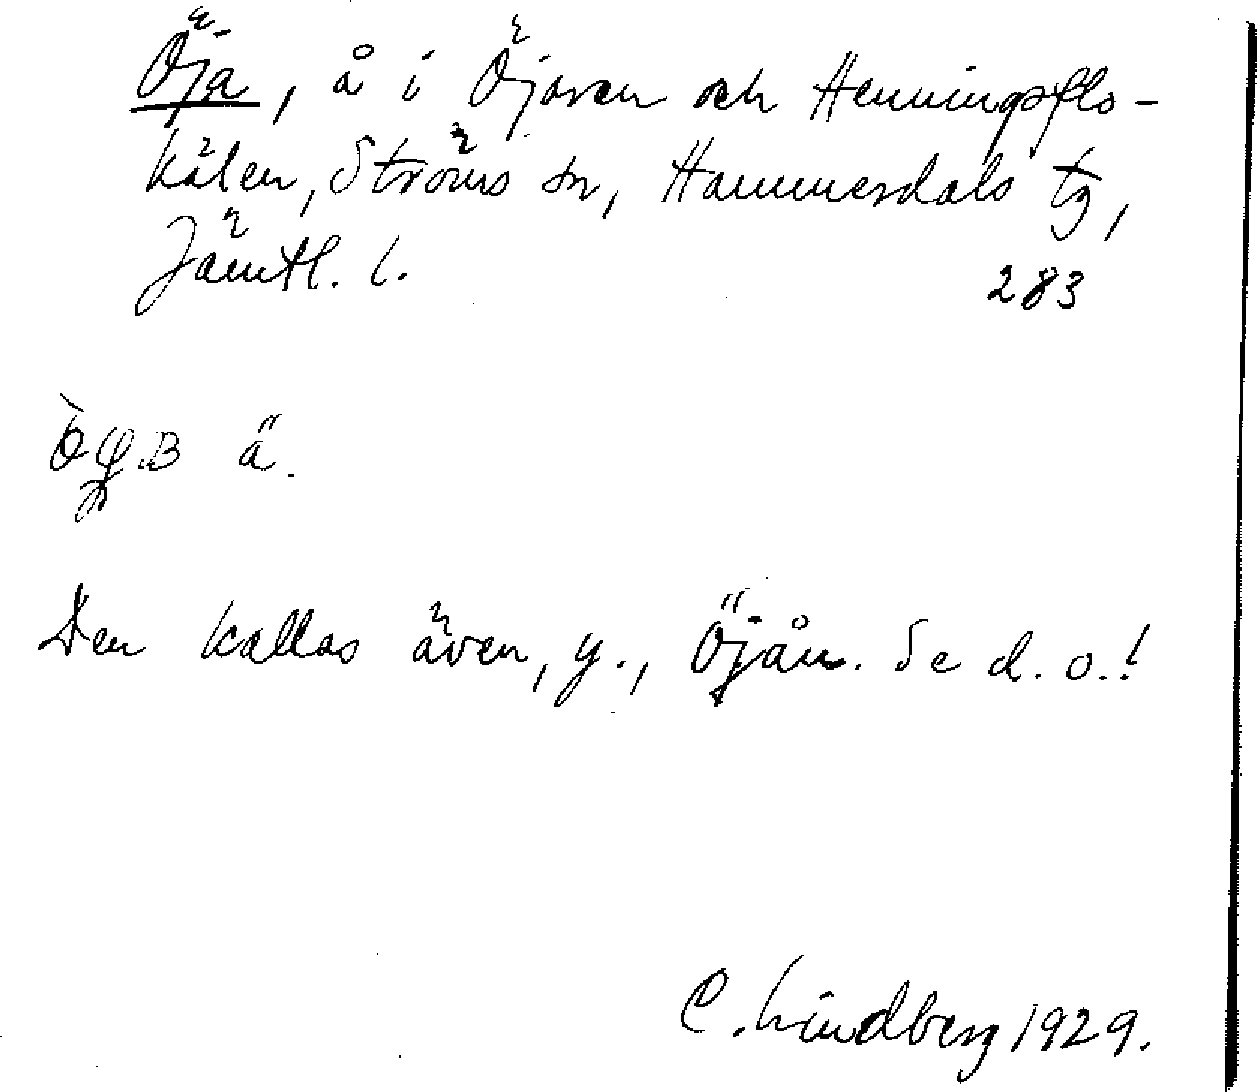 Öja, å i Öjaren och Henningsflo-
kälen, Ströms sn, Hammerdals tg,
Jämtl. l.
283
ä.
Den kallas även, y., Öjån. Se d. o.!
C. Lindberg 1929.